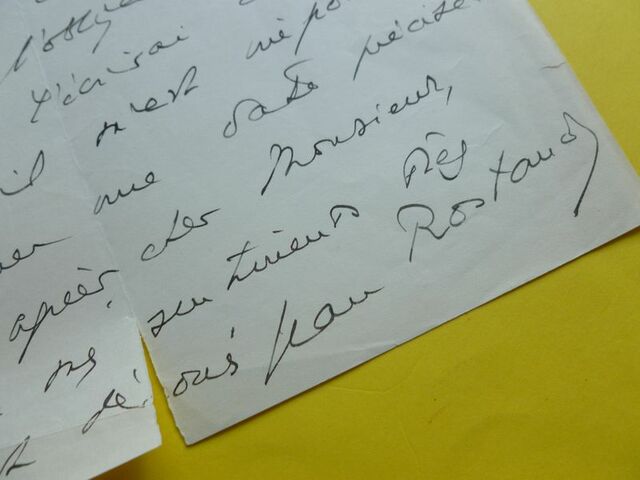 j'écrirai
il n'est
une date précise.
agréer, cher Monsieur,
sentiments très
et dévoués Jean Rostand